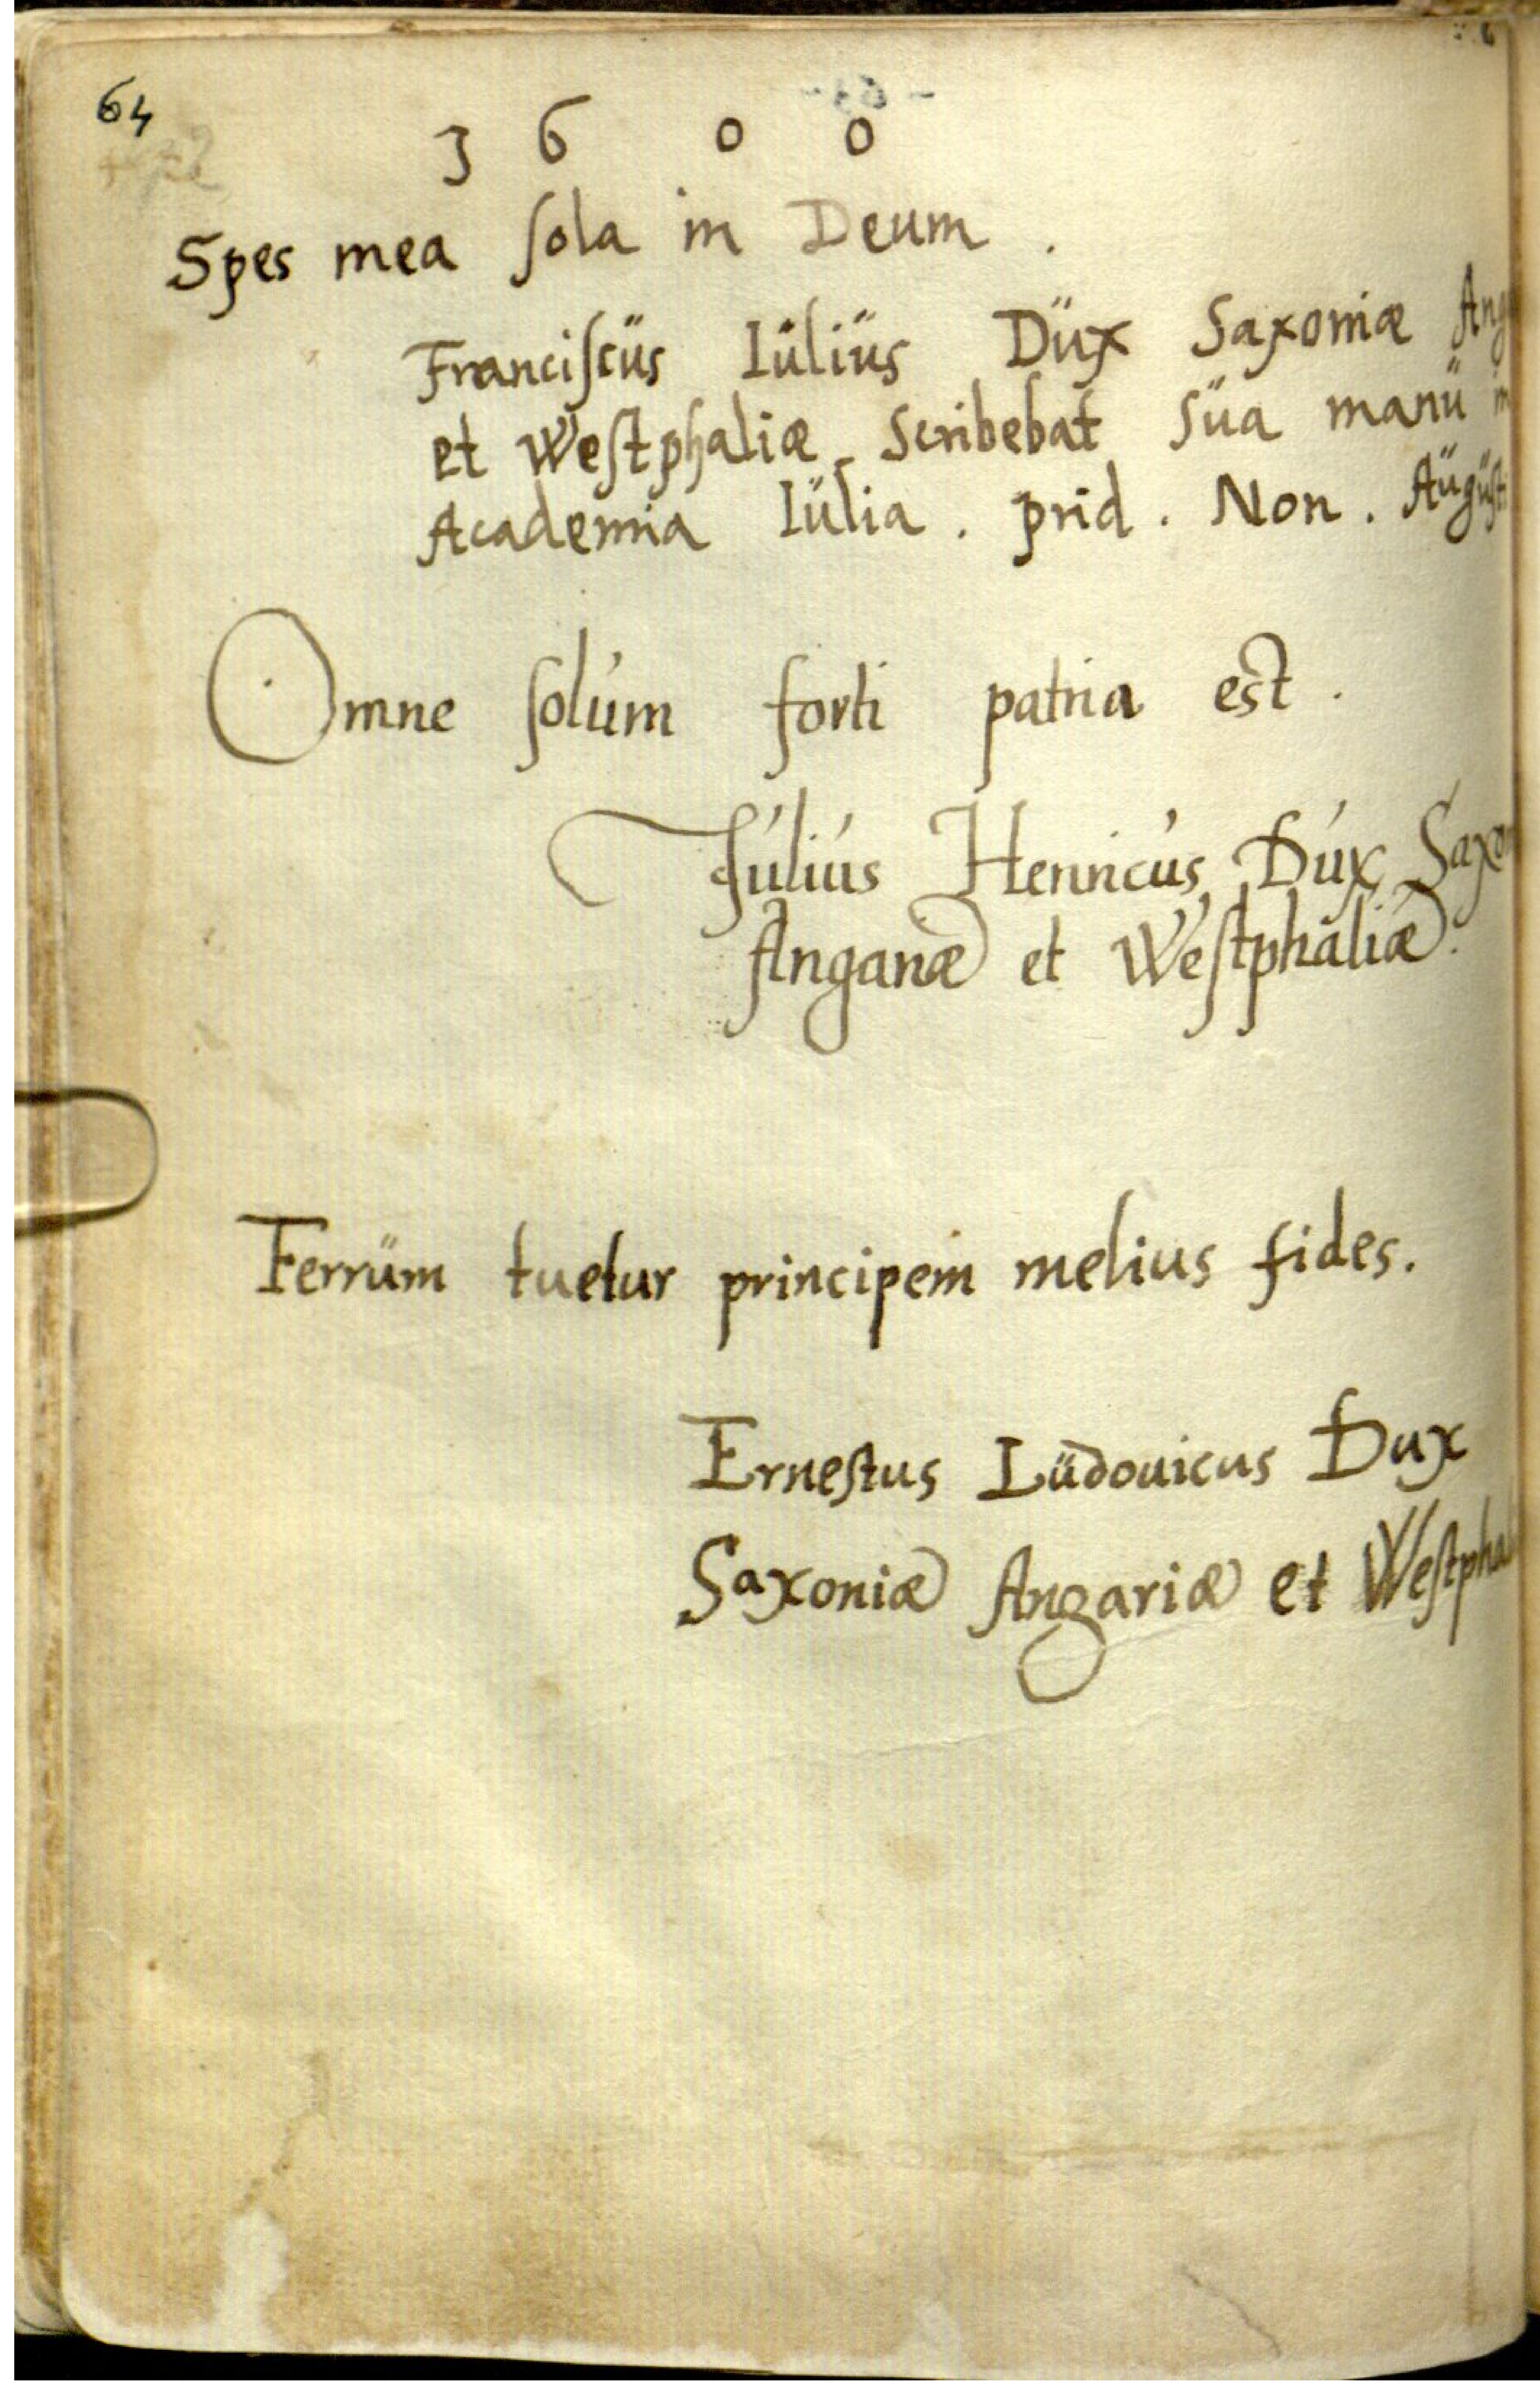 64
3 6 0 0
Spes mea ſola in Deum .
Franciſcüs Iüliüs Düx Saxoniæ Ang
et Weſtphaliæ scribebat süa manü in
Academia Iülia . prid . Non . Aügüſt
Omne ſolúm forti patria est .
Júliús Henricús Dúx Saxon
Angariæ et Weſtphaliæ.
Ferrüm tuetur principem melius fides.
Erneſtus Lüdouicus Dux
Saxoniæ Angariæ et Weſtphali